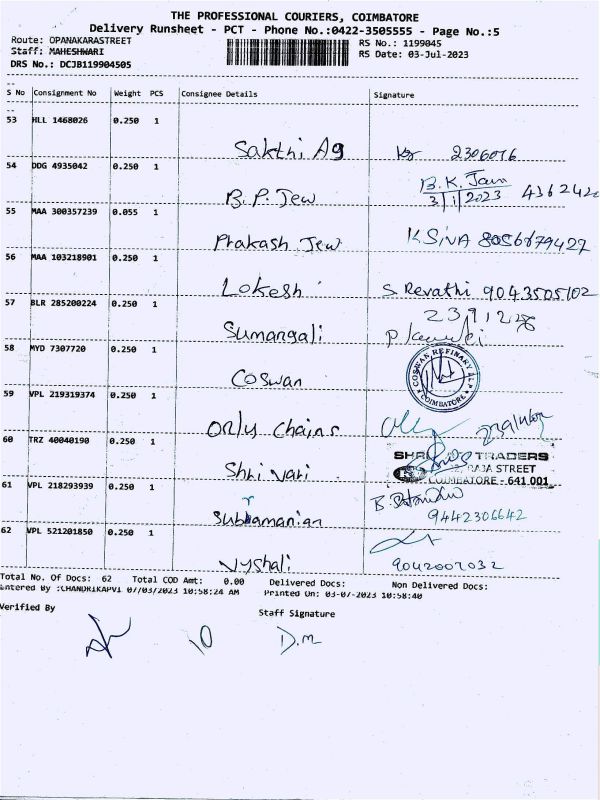 THE PROFESSIONAL COURIERS, COIMBATORE
Delivery Runsheet - PCT - Phone No.:0422-3505555 - Page No.:5
Route: OPANAKARASTREET RS No.: 1199045
Staff: MAHESHWARI RS Date: 03-Jul-2023
DRS No.: DCJB119904505
S No Consignment No Weight PCS Consignee Details Signature
53 HLL 1468026 0.250 1
Sakthi Ag 2306076
54 DDG 4935042 0.250 1
B.P. Jew B.K. Jain 3/1/2023 4362420
55 MAA 300357239 0.055 1
Prakash Jew K SIVA 8056679427
56 MAA 103218901 0.250 1
Lokesh S Revathi 9043505102
57 BLR 285200224 0.250 1
2391228
Sumangali
58 MYD 7307720 0.250 1
Coswan COSWAN REFINARY COIMBATORE
59 VPL 219319374 0.250 1
Only Chains
60 TRZ 40040190 0.250 1
SHRI TRADERS
Shri Vari RAJA STREET
COIMBATORE - 641 001
61 VPL 218293939 0.250 1
Subramanian 9442306642
62 VPL 521201850 0.250 1
Vyshali 9042002032
Total No. Of Docs: 62 Total COD Amt: 0.00 Delivered Docs: Non Delivered Docs:
Entered By :CHANDRIKAPV1 07/03/2023 10:58:24 AM Printed On: 03-07-2023 10:58:40
Verified By Staff Signature
10 D.M